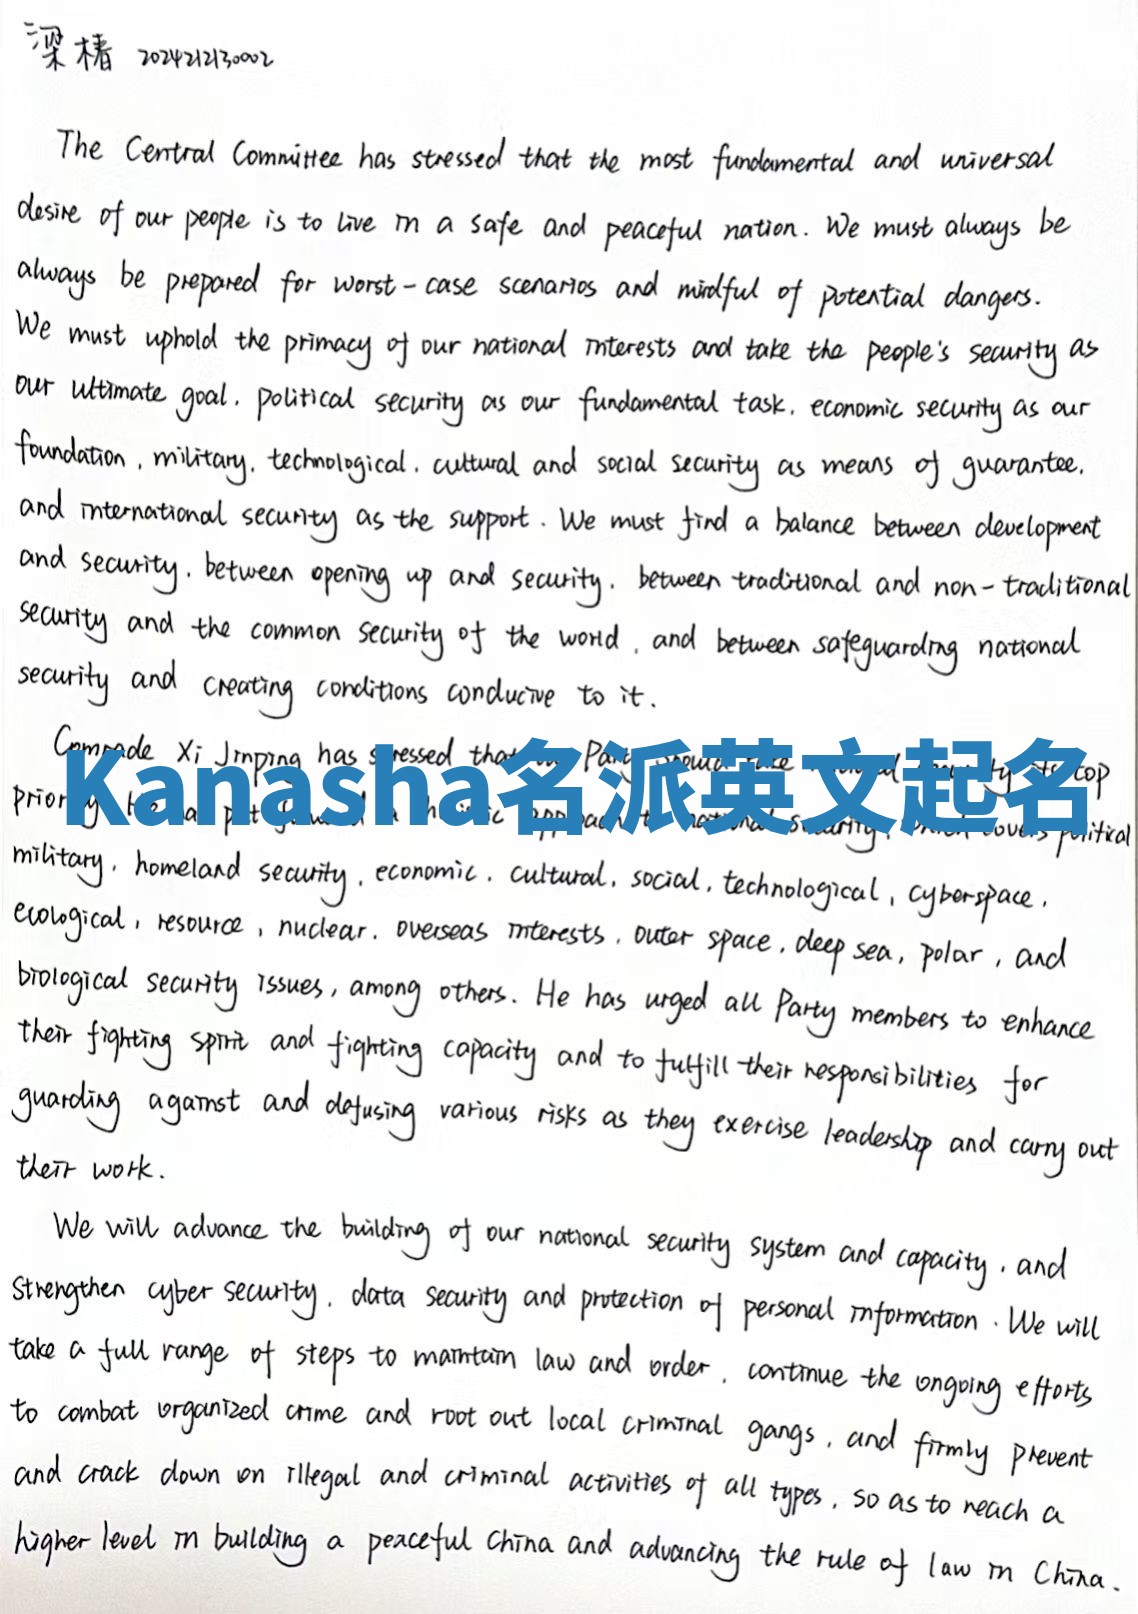 梁椿 2024212130002
The Central Committee has stressed that the most fundamental and universal
desire of our people is to live in a safe and peaceful nation. We must always be
always be prepared for worst-case scenarios and mindful of potential dangers.
We must uphold the primacy of our national interests and take the people's security as
our ultimate goal, political security as our fundamental task, economic security as our
foundation, military, technological, cultural and social security as means of guarantee,
and international security as the support. We must find a balance between development
and security, between opening up and security, between traditional and non-traditional
security and the common security of the world, and between safeguarding national
security and creating conditions conducive to it.
Comrade Xi Jinping has stressed that Party top
Kanasha名派英文起名
priority political
military, homeland security, economic, cultural, social, technological, cyberspace,
ecological, resource, nuclear, overseas interests, outer space, deep sea, polar, and
biological security issues, among others. He has urged all Party members to enhance
their fighting spirit and fighting capacity and to fulfill their responsibilities for
guarding against and defusing various risks as they exercise leadership and carry out
their work.
We will advance the building of our national security system and capacity, and
strengthen cyber security, data security and protection of personal information. We will
take a full range of steps to maintain law and order, continue the ongoing efforts
to combat organized crime and root out local criminal gangs, and firmly prevent
and crack down on illegal and criminal activities of all types, so as to reach a
higher level in building a peaceful China and advancing the rule of law in China.